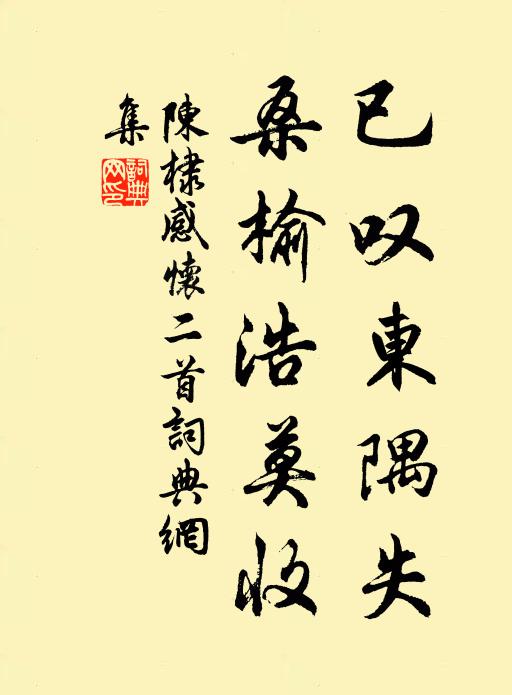 已叹東隅失
桑榆浩莫收
陳棣感懷二首詞典網
集
詞典
网印